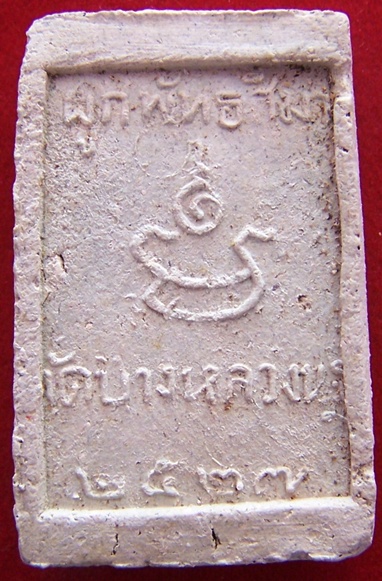 ผูกพัทธสีมา
วัดบางหลวง
๒๕๒๗